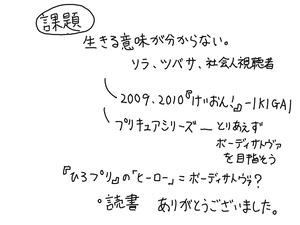 課題
生きる意味が分からない。
ソラ、ツバサ、社会人視聴者
2009、2010『けいおん!』-IKIGAI
プリキュアシリーズ ― とりあえず
ボーディサトヴァ
を目指そう
『ひろプリ』の「ヒーロー」=ボーディサトヴァ?
○読書 ありがとうございました。